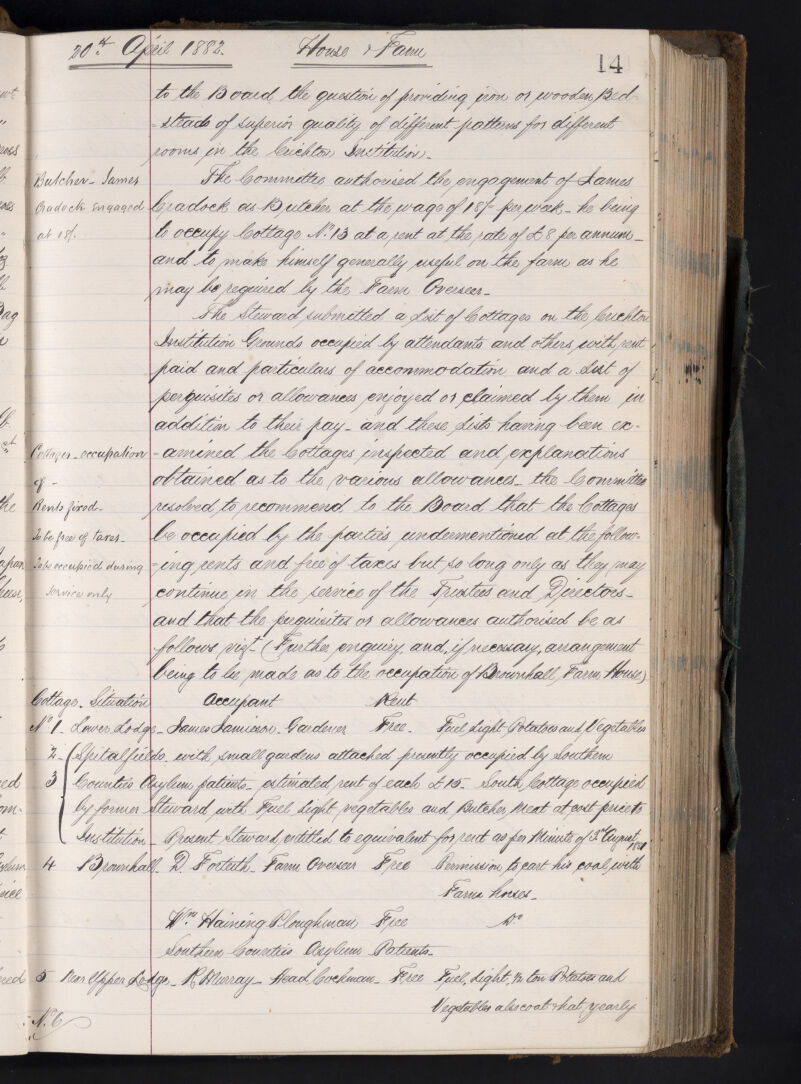 20th April 1882. House & Farm
14
to the Board the question of providing iron or wooden Bed
-steads of superior quality of different patterns for different
rooms in the Crichton Institution.
Butcher - James
Cradock engaged
at 18/.
The Committee authorised the engagement of James
Cradock as Butcher at the wage of 18/- per week - he being
to occupy Cottage No. 13 at a rent at the rate of £8 per annum -
and to make himself generally useful on the farm as he
may be required by the Farm Overseer -
The Steward submitted a List of Cottages on the Crichton
Institution Grounds occupied by attendants and others, with rent
paid and particulars of accommodation and a List of
perquisites or allowances enjoyed or claimed by them in
addition to their pay - and these Lists having been ex-
Cottages - occupation
of -
Rents fixed -
To be free of taxes -
To be occupied during
service only
-amined the Cottages inspected and explanations
obtained as to the various allowances - the Committee
resolved to recommend to the Board that the Cottages
be occupied by the parties undermentioned at the follow-
-ing rents and free of taxes but so long only as they may
continue in the service of the Trustees and Directors -
and that the perquisites or allowances authorised be as
follows vizt. (Further enquiry and, if necessary, arrangement
being to be made as to the occupation of Brownhall Farm House)
Cottage. Situation Occupant Rent
No 1. Lower Lodge - James Jamieson. Gardener Free. Fuel Light Potatoes and Vegetables
2. Spitalfields with small gardens attached presently occupied by Southern
3 Counties Asylum patients - estimated rent of each £15 - South Cottage occupied
by former Steward with Fuel Light, vegetables and Butcher Meat at cost price to
Institution - Present Steward entitled to equivalent for rent as per Minute of 3rd August
1881
4 Brownhall. D. Farm Overseer Free Permission to cart his coal with
Farm horses -
Wm Haining Ploughman Free Do
Southern Counties Asylum Patients -
5 Near Upper Lodge - R. Murray - Head Cockman - Free Fuel, Light, ton Potatoes and
Vegetables also coat & hat yearly
No. 6